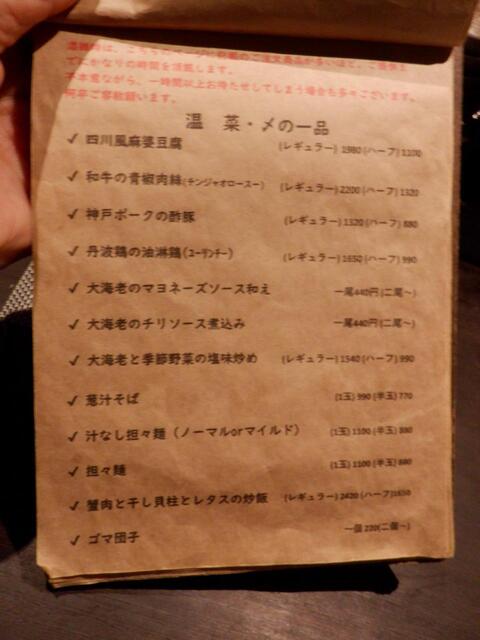 混雑時は、こちらのページに記載のご注文商品が多いほど、ご提供
までにかなりの時間を頂戴します。
不本意ながら、一時間以上お待たせしてしまう場合も多々ございます。
何卒ご容赦願います。
温 菜・〆の一品
✓ 四川風麻婆豆腐 (レギュラー) 1980 (ハーフ) 1100
✓ 和牛の青椒肉絲(チンジャオロースー) (レギュラー) 2200 (ハーフ) 1320
✓ 神戸ポークの酢豚 (レギュラー) 1320 (ハーフ) 880
✓ 丹波鶏の油淋鶏(ユーリンチー) (レギュラー) 1650 (ハーフ) 990
✓ 大海老のマヨネーズソース和え 一尾440円(二尾〜)
✓ 大海老のチリソース煮込み 一尾440円(二尾〜)
✓ 大海老と季節野菜の塩味炒め (レギュラー) 1540 (ハーフ) 990
✓ 葱汁そば (1玉) 990 (半玉) 770
✓ 汁なし担々麺（ノーマルorマイルド） (1玉) 1100 (半玉) 880
✓ 担々麺 (1玉) 1100 (半玉) 880
✓ 蟹肉と干し貝柱とレタスの炒飯 (レギュラー) 2420 (ハーフ)1650
✓ ゴマ団子 一個 220(二個〜)